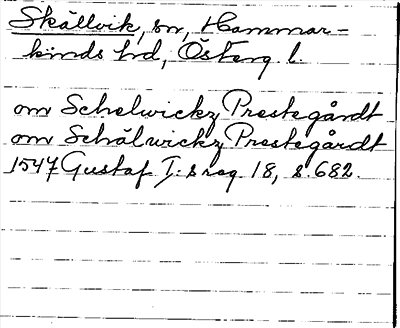 Skällvik, sn, Hammar-
kinds hd, Österg. l.
om Schelwickz Prestegårdt
om Schälwickz Prestegårdt
1547 Gustaf I:s reg. 18, s. 682.